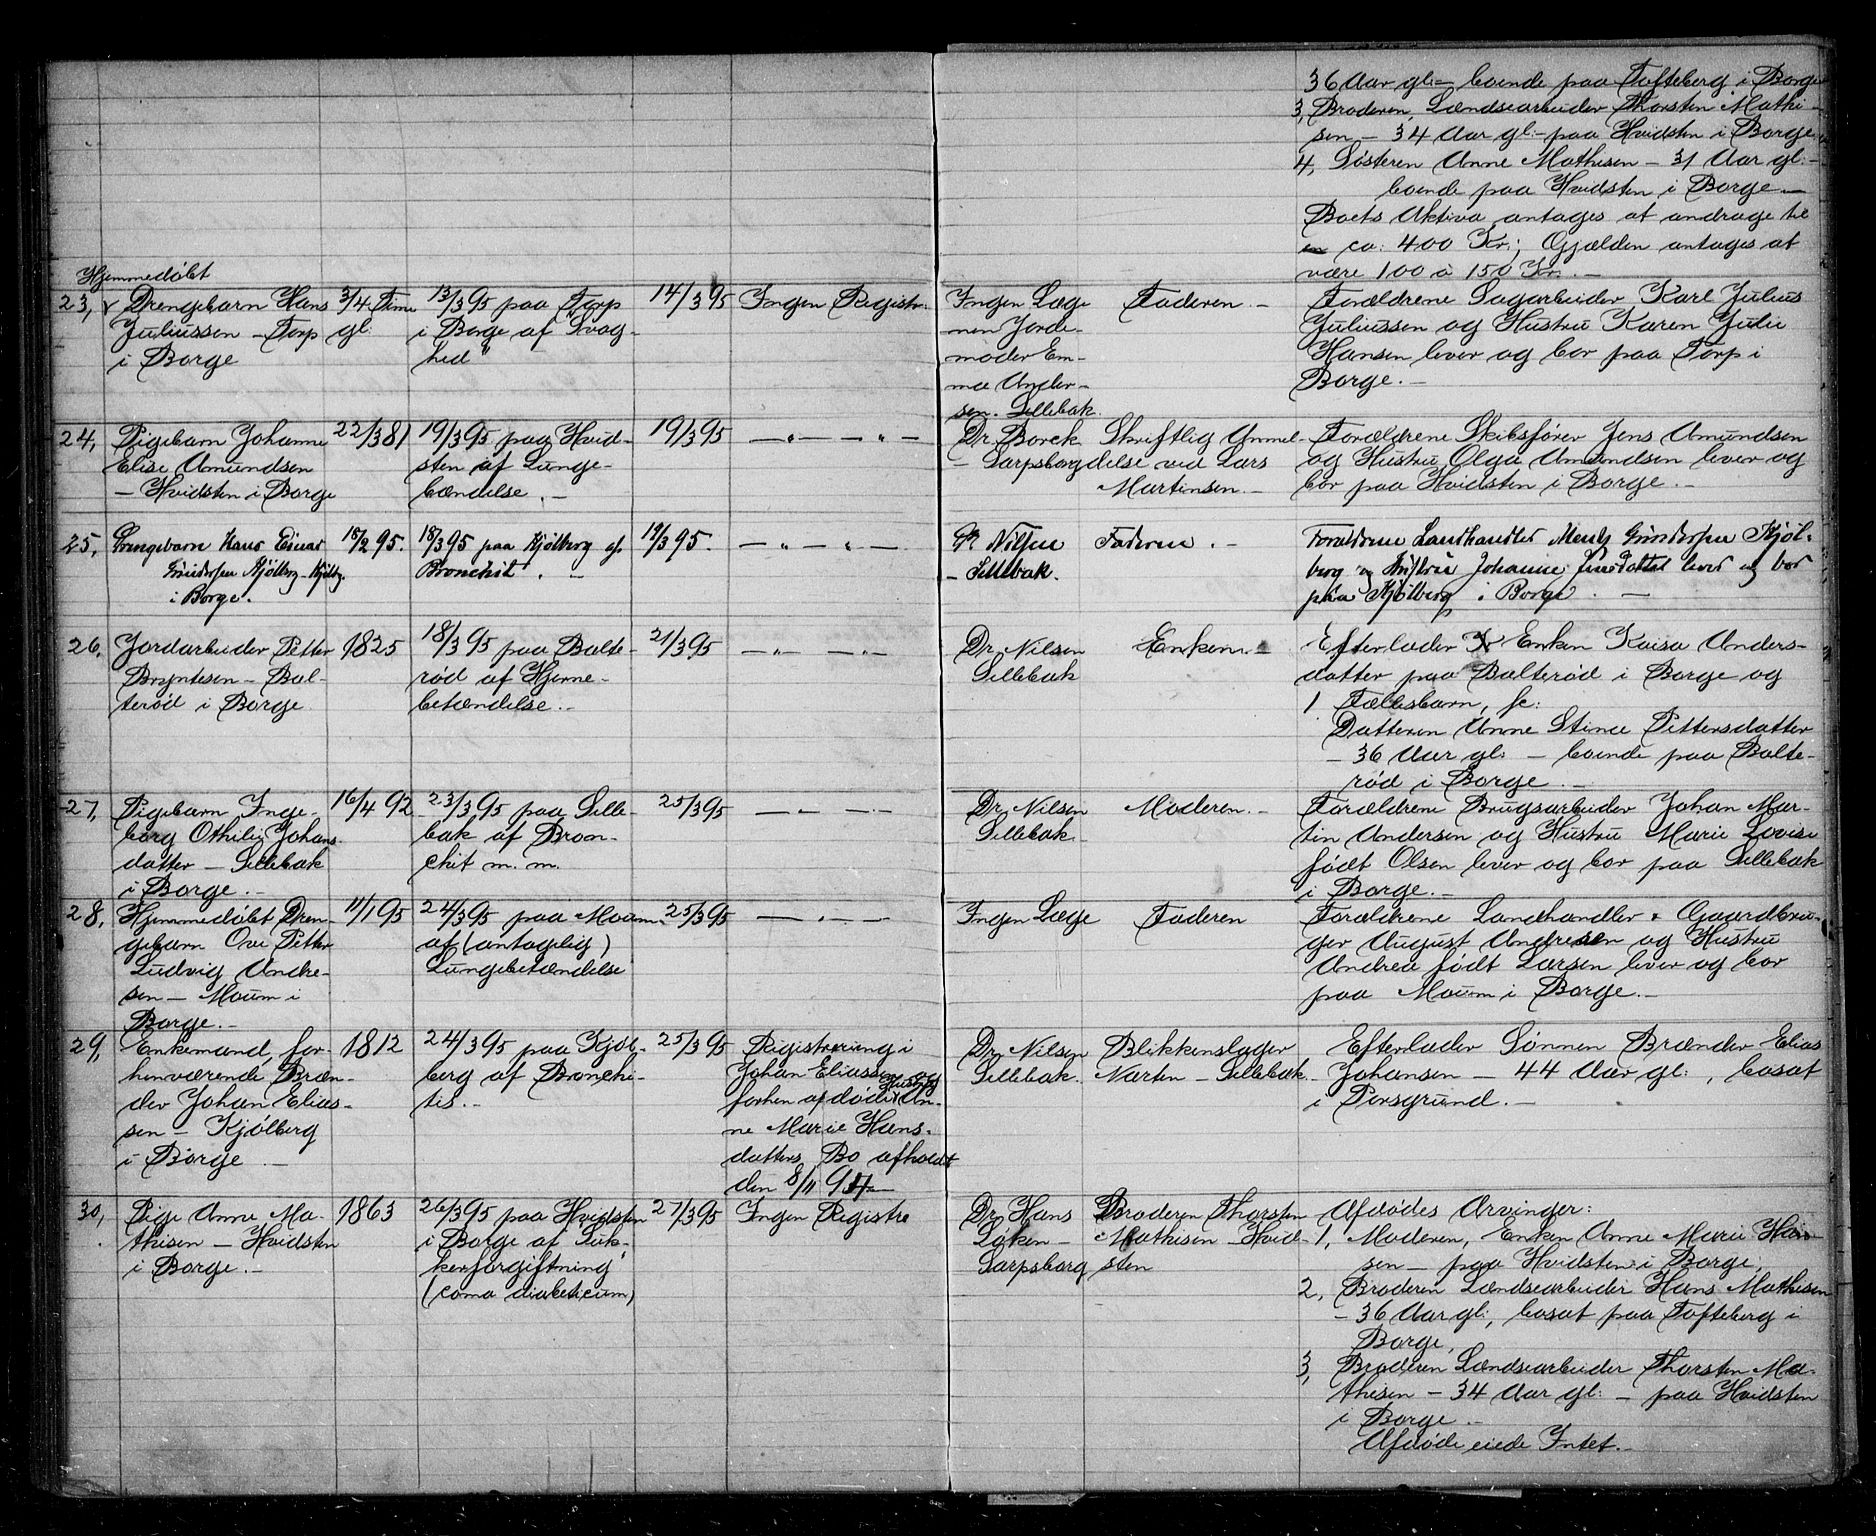 36 Aar gl: – boende paa Tofteberg i Borge
3, Broderen, Lændsearbeider Thorsten Mathi-
sen – 34 Aar gl: – paa Hvidsten i Borge
4, Søsteren Anne Mathisen – 31 Aar gl: –
boende paa Hvidsten i Borge –
Boets Aktiva antages at andrage til
ca: 400 Kr:; Gjælden antages at
være 100 à 150 Kr. –
Hjemmedøbt
23, Drengebarn Hans
Juliussen – Torp
i Borge
3/4 Time
gl:
13/3 95 paa Torp
i Borge af Svag-
hed"
14/3 95
Ingen Registr.
Ingen Læge
men Jorde-
moder Em-
ma Ander-
sen. Sellebak.
Faderen. –
Forældrene Sagarbeider Karl Julius
Juliussen og Hustru Karen Julie
Hansen lever og bor paa Torp i
Borge. –
24, Pigebarn Johanne
Elise Amundsen
– Hvidsten i Borge
22/3 81
19/3 95 paa Hvid-
sten af Lunge-
bændelse. –
19/3 95
— " — " —
Dr. Borck
– Sarpsborg
Skriftlig Anmel-
delse ved Lars
Martinsen. –
Forældrene Skibsfører Jens Amundsen
og Hustru Olga Amundsen lever og
bor paa Hvidsten i Borge. –
25, Drengebarn Hans Einar
Gundersen Kjølberg – Kjølbg.
i Borge.
18/2 95.
18/3 95 paa Kjølberg af
Bronchit. –
19/3 95.
— " — " —
Dr Nilsen
– Sellebak.
Faderen. –
Forældrene Landhandler Mentz Gundersen Kjøl-
berg og Hustru Johanne lever og bor
paa Kjølberg i Borge. –
26, Jordarbeider Petter
Bryntesen – Bal-
terød i Borge
1825
18/3 95 paa Balte-
rød af Hjerne-
betændelse. –
21/3 95
— " — " —
Dr. Nilsen
Sellebak
Enken. –
Efterlader Enken Kaisa Anders-
datter paa Balterød i Borge og
1 Fællesbarn, fr:
Datteren Anne Stine Pettersdatter
– 36 Aar gl: – boende paa Balte-
rød i Borge. –
27, Pigebarn Inge-
borg Othilie Johans-
datter – Sellebak
i Borge. –
16/4 92
23/3 95 paa Selle-
bak af Bron-
chit m. m.
25/3 95
— " — " —
Dr. Nilsen
Sellebak.
Moderen. –
Forældrene Brugsarbeider Johan Mar-
tin Andersen og Hustru Marie Lovise
født Olsen lever og bor paa Sellebak
i Borge. –
28, Hjemmedøbt Dren-
gebarn Ove Petter
Ludvig Andre-
sen – Moum i
Borge. –
11/1 95
24/3 95 paa Moum
af (antagelig)
Lungebetændelse
25/3 95
— " — " —
Ingen Læge
Faderen
Forældrene Landhandler & Gaardbru-
ger August Andresen og Hustru
Andrea født Larsen lever og bor
paa Moum i Borge. –
29, Enkemand, for-
henværende Bræn-
der Johan Elias-
sen – Kjølberg
i Borge –
1812
24/3 95 paa Kjøl-
berg af Bronchi-
tis. –
25/3 95
Registrering i
Johan Eliassen og
forhen afdøde Hustru An-
ne Marie Hans-
datters Bo afholdt
den 8/11 94 –
Dr. Nilsen
Sellebak.
Blikkenslager
Narten – Sellebak.
Efterlader Sønnen Brænder Elias
Johansen – 44 Aar gl:, bosat
i Porsgrund. –
30, Pige Anne Ma-
thisen – Hvidsten
i Borge. –
1863
26/3 95 paa Hvidsten
i Borge af Suk-
kerforgiftning
(coma diabeticum)
27/3 95
Ingen Registre
Dr. Hans
Løken –
Sarpsborg
Broderen Thorsten
Mathisen Hvid-
sten
Afdødes Arvinger:
1, Moderen, Enken Anne Marie Han-
sen – paa Hvidsten i Borge,
2, Broderen Lændsearbeider Hans Mathisen
– 36 Aar gl:, bosat paa Tofteberg i
Borge,
3, Broderen Lændsearbeider Thorsten Ma-
thisen – 34 Aar gl: – paa Hvidsten
i Borge. –
Afdøde eiede Intet. –